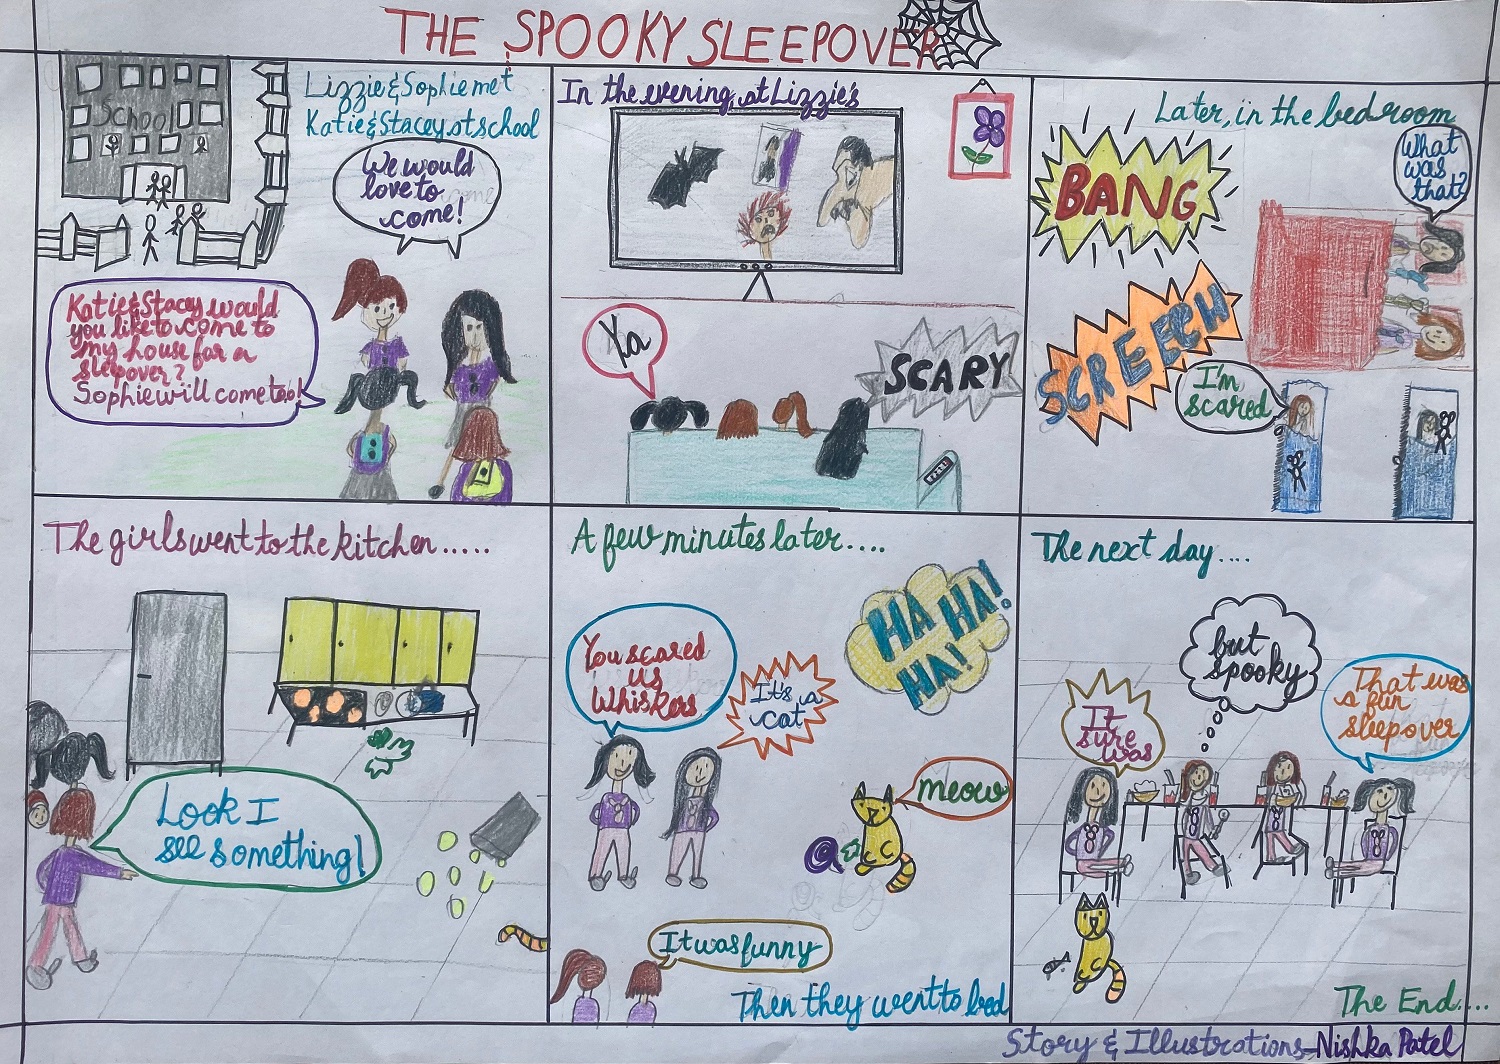 THE SPOOKY SLEEPOVER
Lizzie & Sophie met
Katie & Stacey at school
School
We would
love to
come!
Katie & Stacey would
you like to come to
my house for a
sleepover?
Sophie will come too!
In the evening at Lizzie's
Ya
SCARY
Later, in the bedroom
BANG
What
was
that?
SCREECH
I'm
scared
The girls went to the kitchen.....
Look I
see something!
A few minutes later....
You scared
us
Whiskers
It's a
cat
HA HA!
HA!
meow
It was funny
Then they went to bed
The next day....
It
sure
was
but
spooky
That was
a fun
sleepover
The End....
Story & Illustrations-Nishka Patel